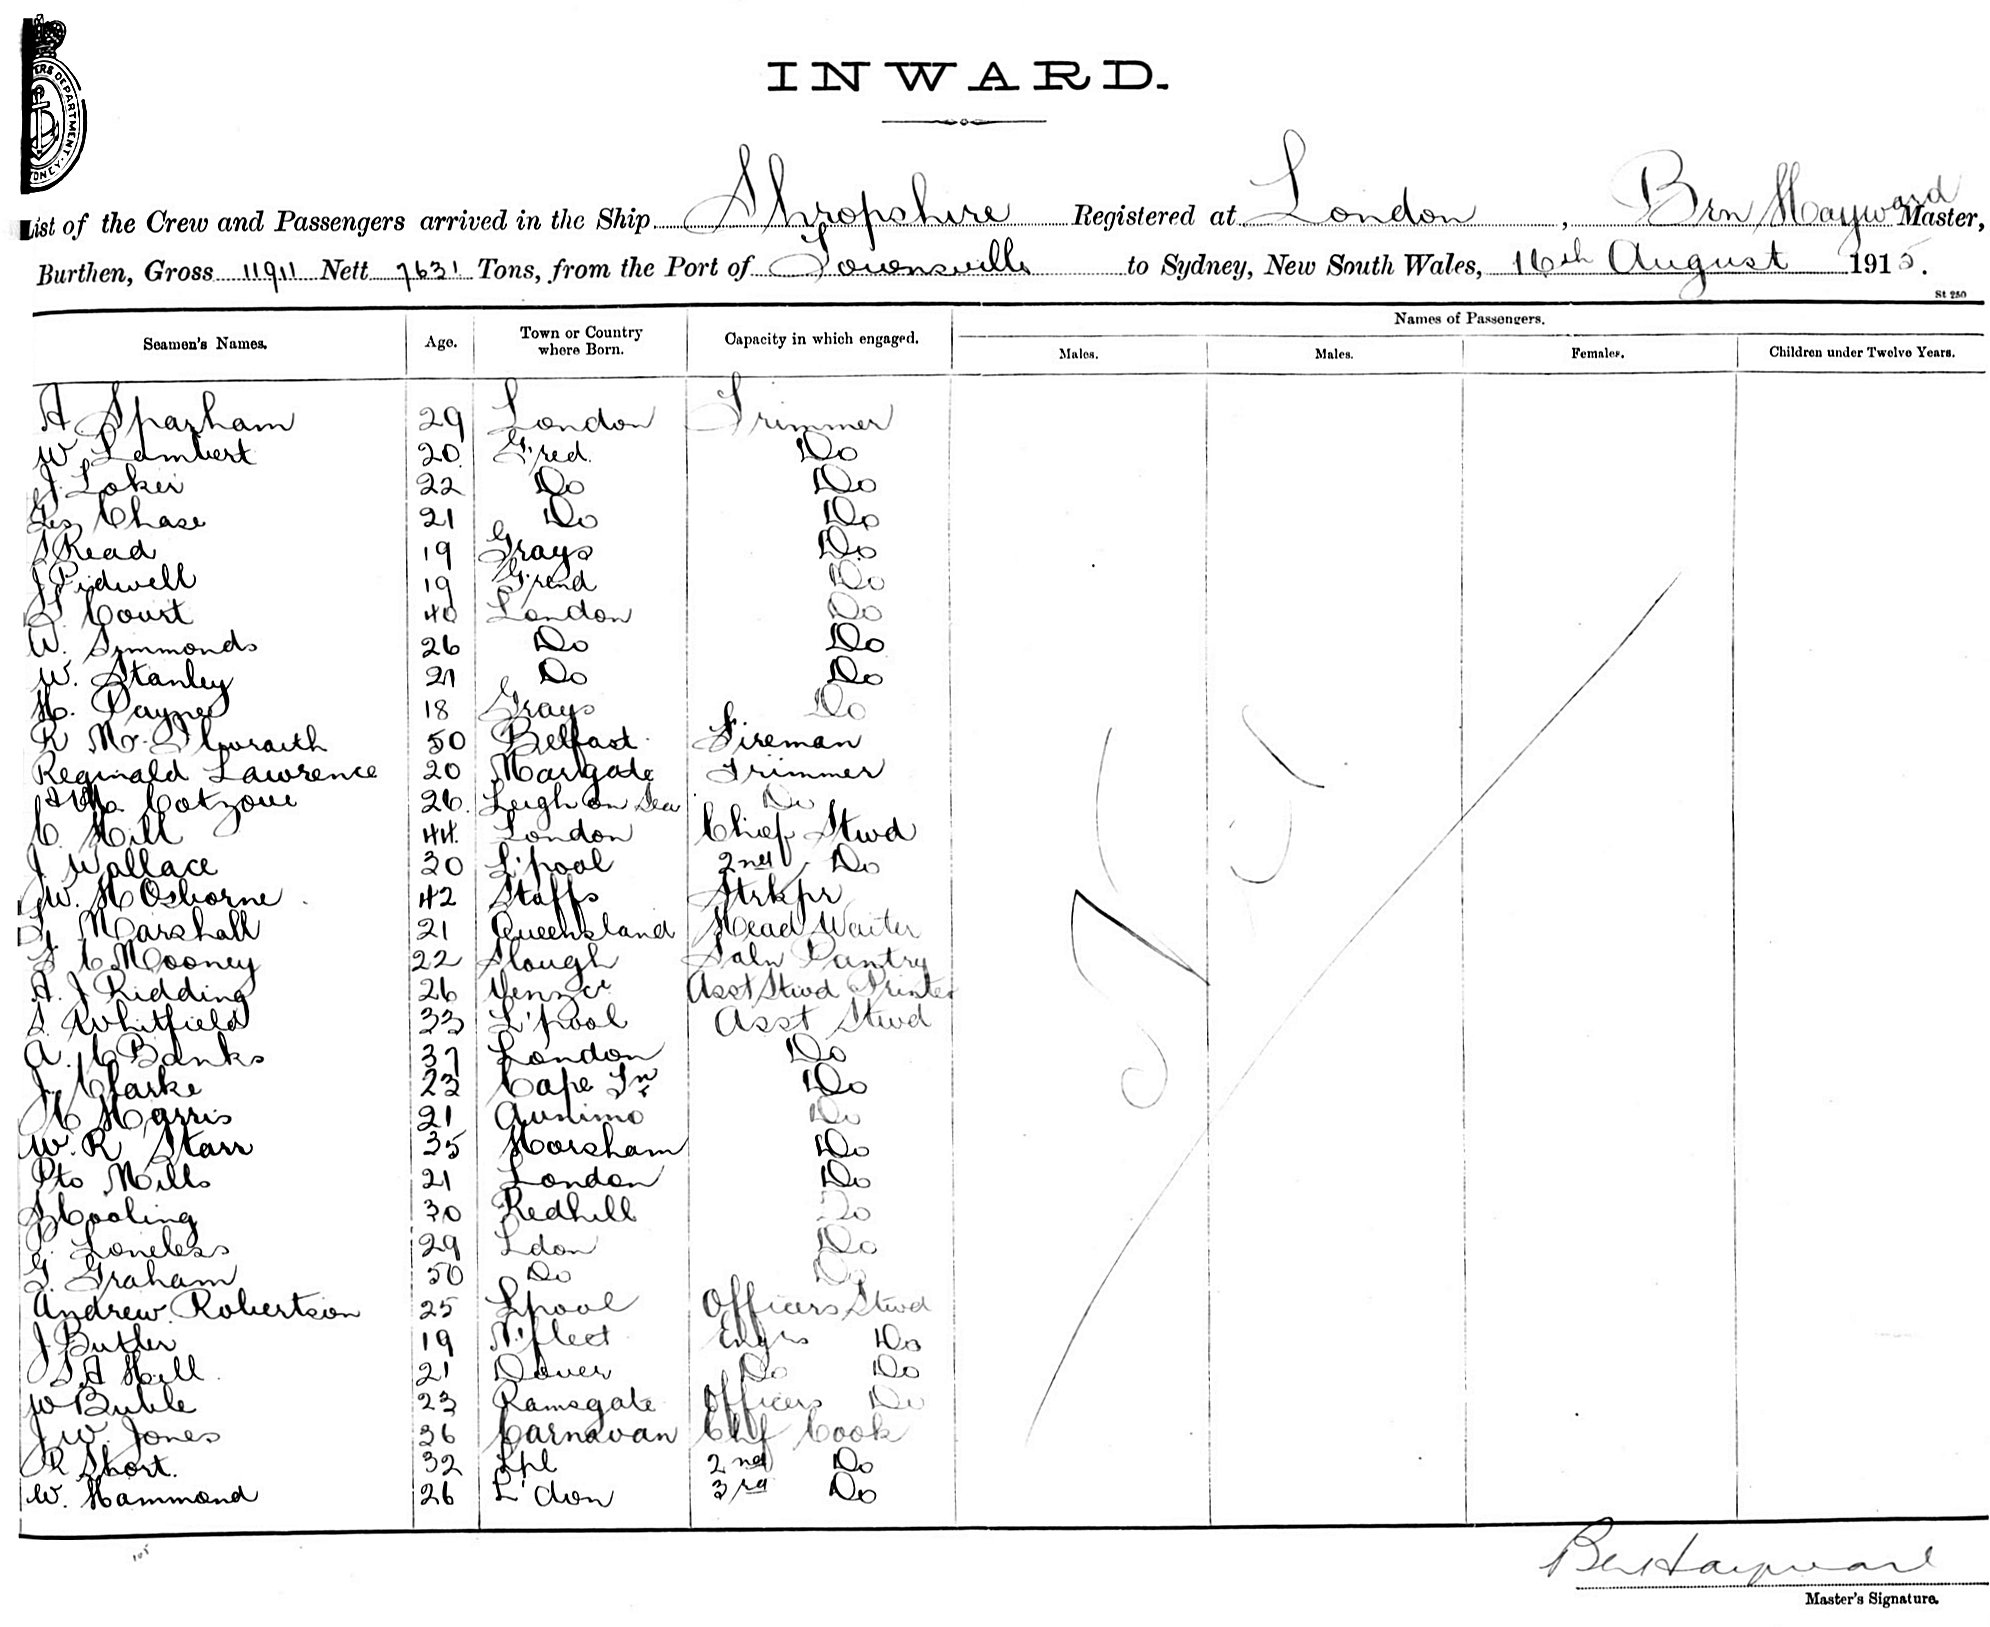 INWARD.
List of the Crew and Passengers arrived in the Ship Shropshire Registered at London, Ben Hayward Master,
Burthen, Gross 11911 Nett 7631 Tons, from the Port of Townsville to Sydney, New South Wales, 16th August 1915.
St 250
Seamen's Names. Age. Town or Country where Born. Capacity in which engaged. Names of Passengers.
Males. Males. Females. Children under Twelve Years.
A Sparham 29 London Trimmer
W Lambert 20 G'red. Do
J. Loker 22 Do Do
Geo Chase 21 Do Do
Read 19 Grays Do
J Pidwell 19 Do
Court 40 London Do
W. Simmonds 26 Do Do
W. Stanley 21 Do Do
H. Payne 18 Grays Do
R Mc Ilwraith 50 Belfast Fireman
Reginald Lawrence 20 Margate Trimmer
26 Leigh on Sea Do
C. Hill 44 London Chief Stwd
J Wallace 30 L'pool 2nd Do
W. H Osborne 42 Staffs Strkpr
Marshall 21 Queensland Head Waiter
C Mooney 22 Slough Saln Pantry
A. J Ridding 26 Asst Stwd Printer
S. Whitfield 33 L'pool Asst Stwd
A. C Banks 37 London Do
J. Clarke 23 Cape Tn Do
H Harris 21 Do
W. R Starr 35 Horsham Do
Mills 21 London Do
Cooling 30 Redhill Do
Loneless 29 Ldon Do
G. Graham 50 Do Do
Andrew Robertson 25 Lpool Officers Stwd
J Butler 19 N'fleet Engrs Do
S A Hill 21 Dover Do Do
W Buhle 23 Ramsgate Officers Do
J W. Jones 36 Carnavan Chf Cook
R Short. 32 Lpl 2nd Do
W. Hammond 26 L'don 3rd Do
Ben Hayward
Master's Signature.